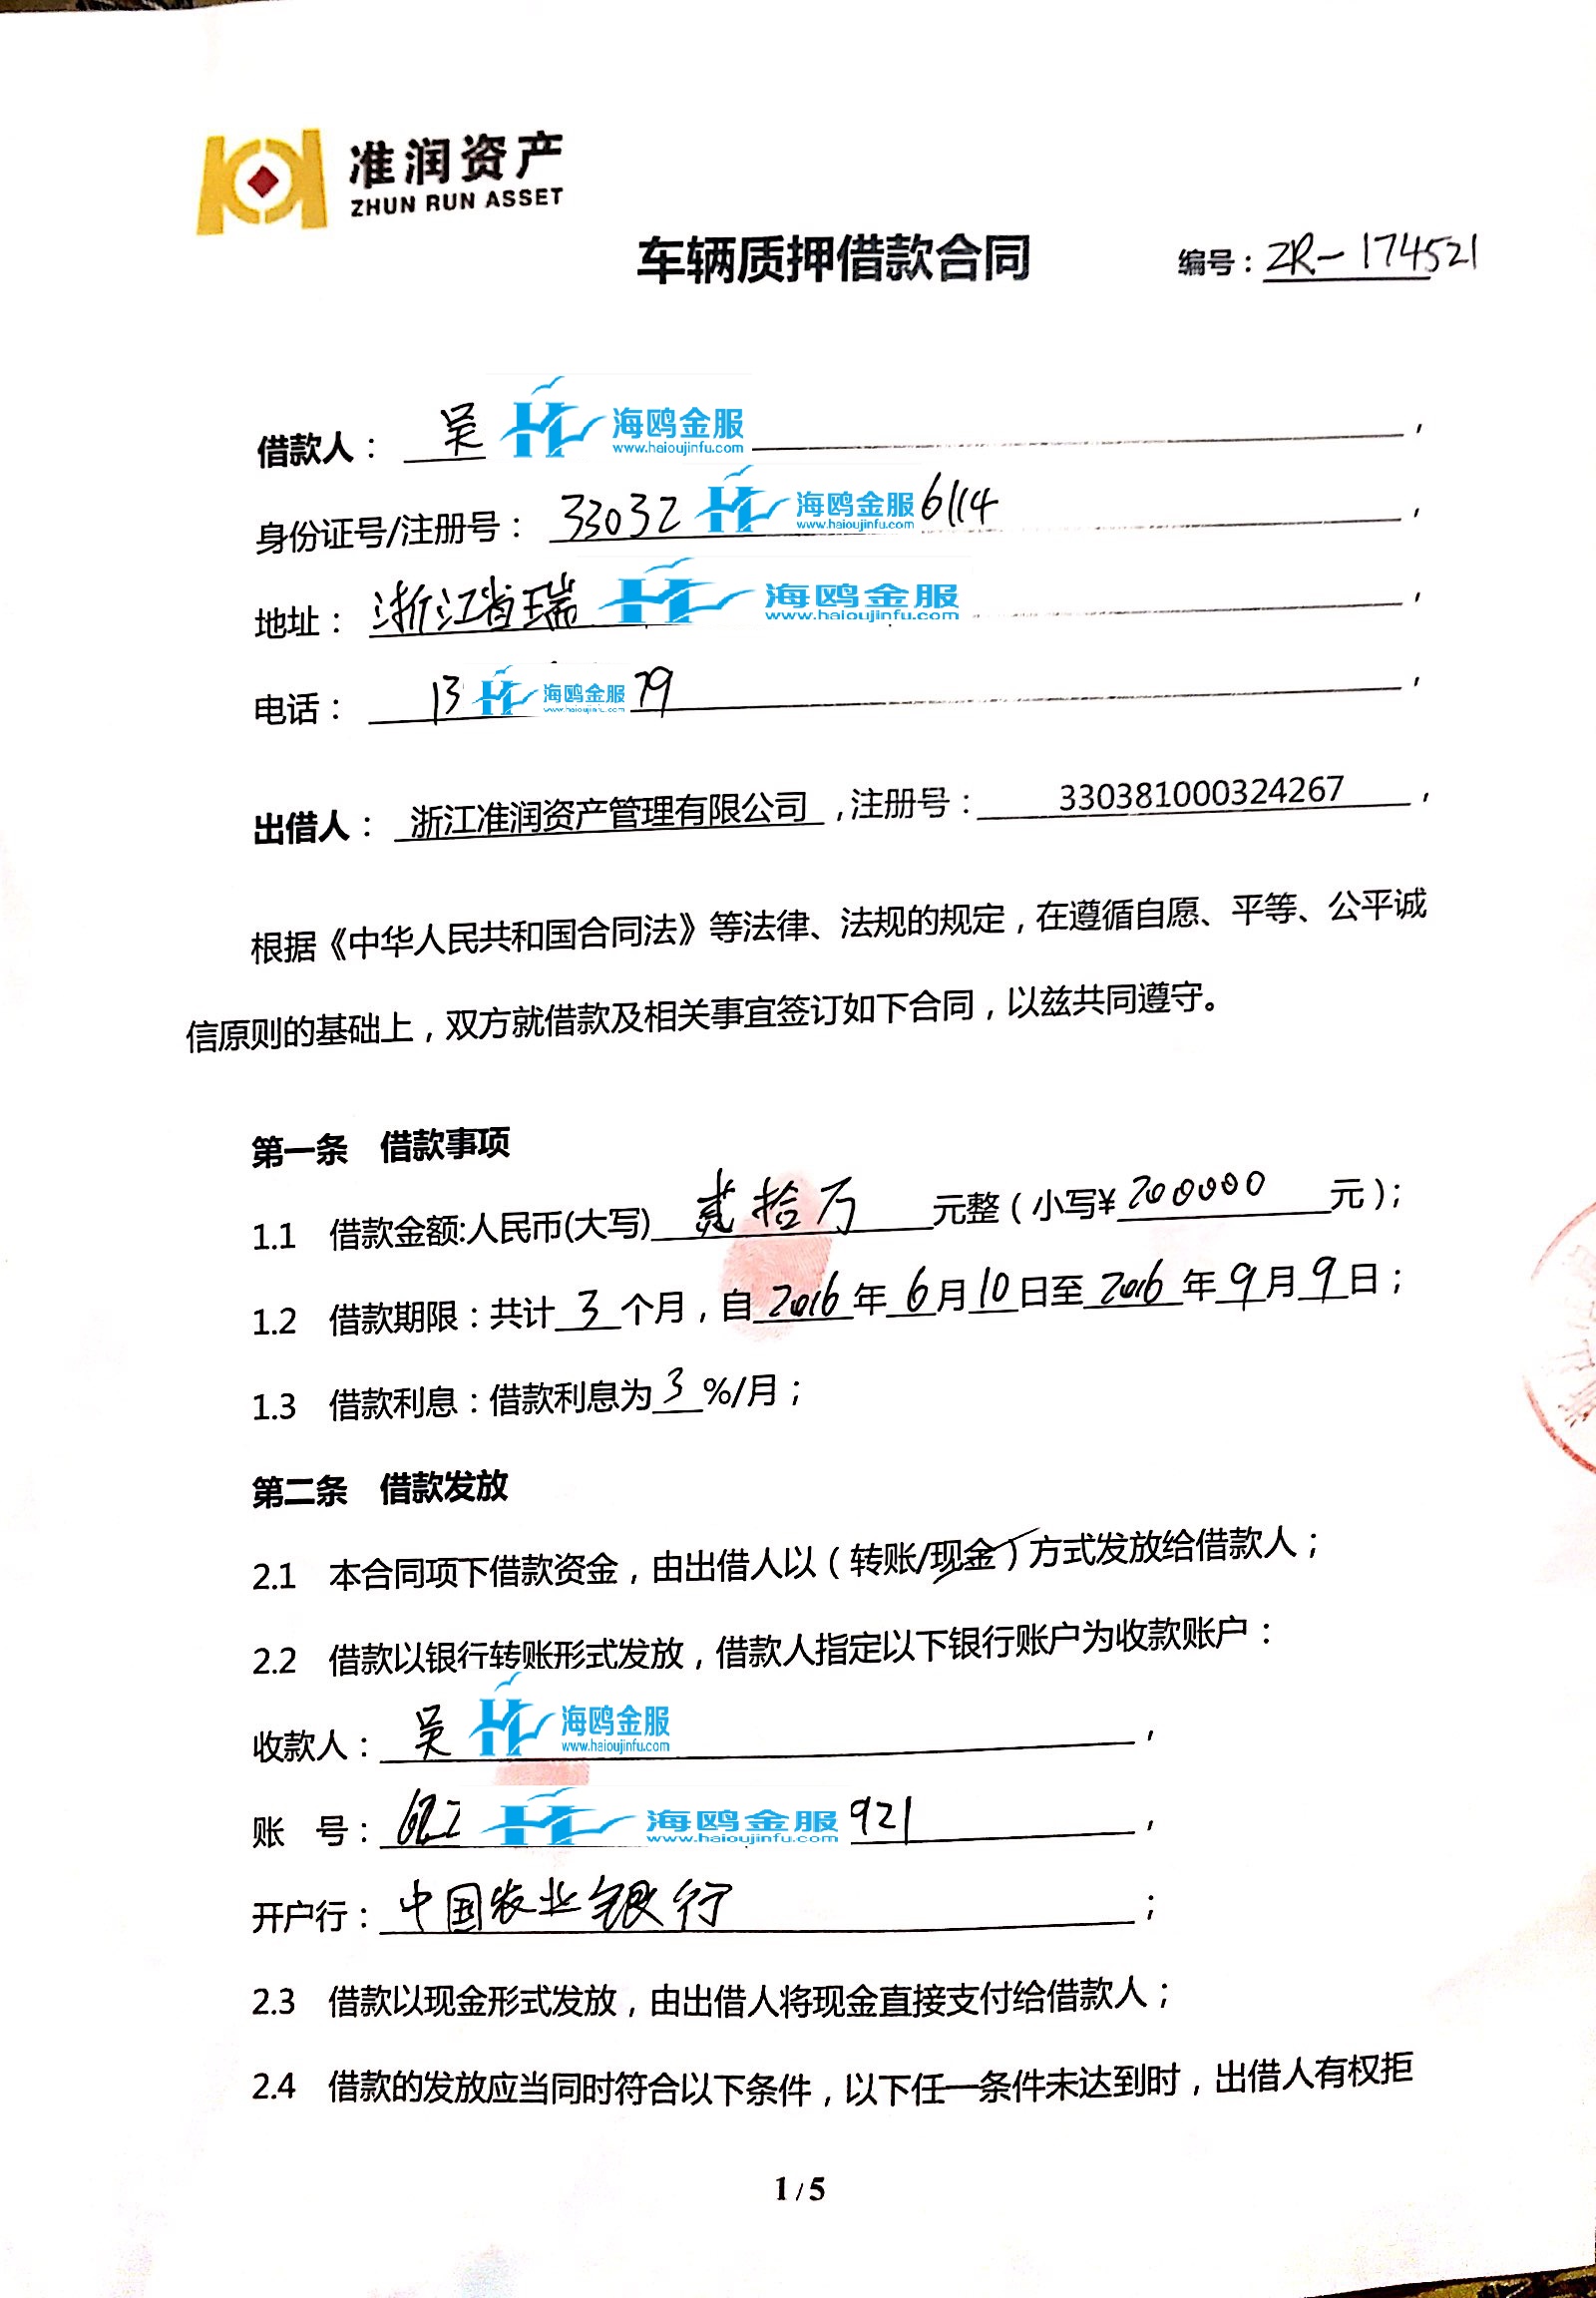 准润资产
ZHUN RUN ASSET
车辆质押借款合同 编号：ZR-174521
借款人： 吴 海鸥金服 ，
www.haioujinfu.com
身份证号/注册号： 33032 海鸥金服 6114 ，
www.haioujinfu.com
地址： 浙江省瑞 海鸥金服 ，
www.haioujinfu.com
电话： 13 海鸥金服 79 ，
www.haioujinfu.com
出借人： 浙江准润资产管理有限公司 ，注册号： 330381000324267 ，
根据《中华人民共和国合同法》等法律、法规的规定，在遵循自愿、平等、公平诚
信原则的基础上，双方就借款及相关事宜签订如下合同，以兹共同遵守。
第一条 借款事项
1.1 借款金额:人民币(大写) 贰拾万 元整（小写¥ 200000 元）；
1.2 借款期限：共计 3 个月，自 2016 年 6 月 10 日至 2016 年 9 月 9 日；
1.3 借款利息：借款利息为 3 %/月；
第二条 借款发放
2.1 本合同项下借款资金，由出借人以（转账/现金）方式发放给借款人；
2.2 借款以银行转账形式发放，借款人指定以下银行账户为收款账户：
收款人： 吴 海鸥金服 ，
www.haioujinfu.com
账 号： 622 海鸥金服 921 ，
www.haioujinfu.com
开户行： 中国农业银行 ；
2.3 借款以现金形式发放，由出借人将现金直接支付给借款人；
2.4 借款的发放应当同时符合以下条件，以下任一条件未达到时，出借人有权拒
1 / 5